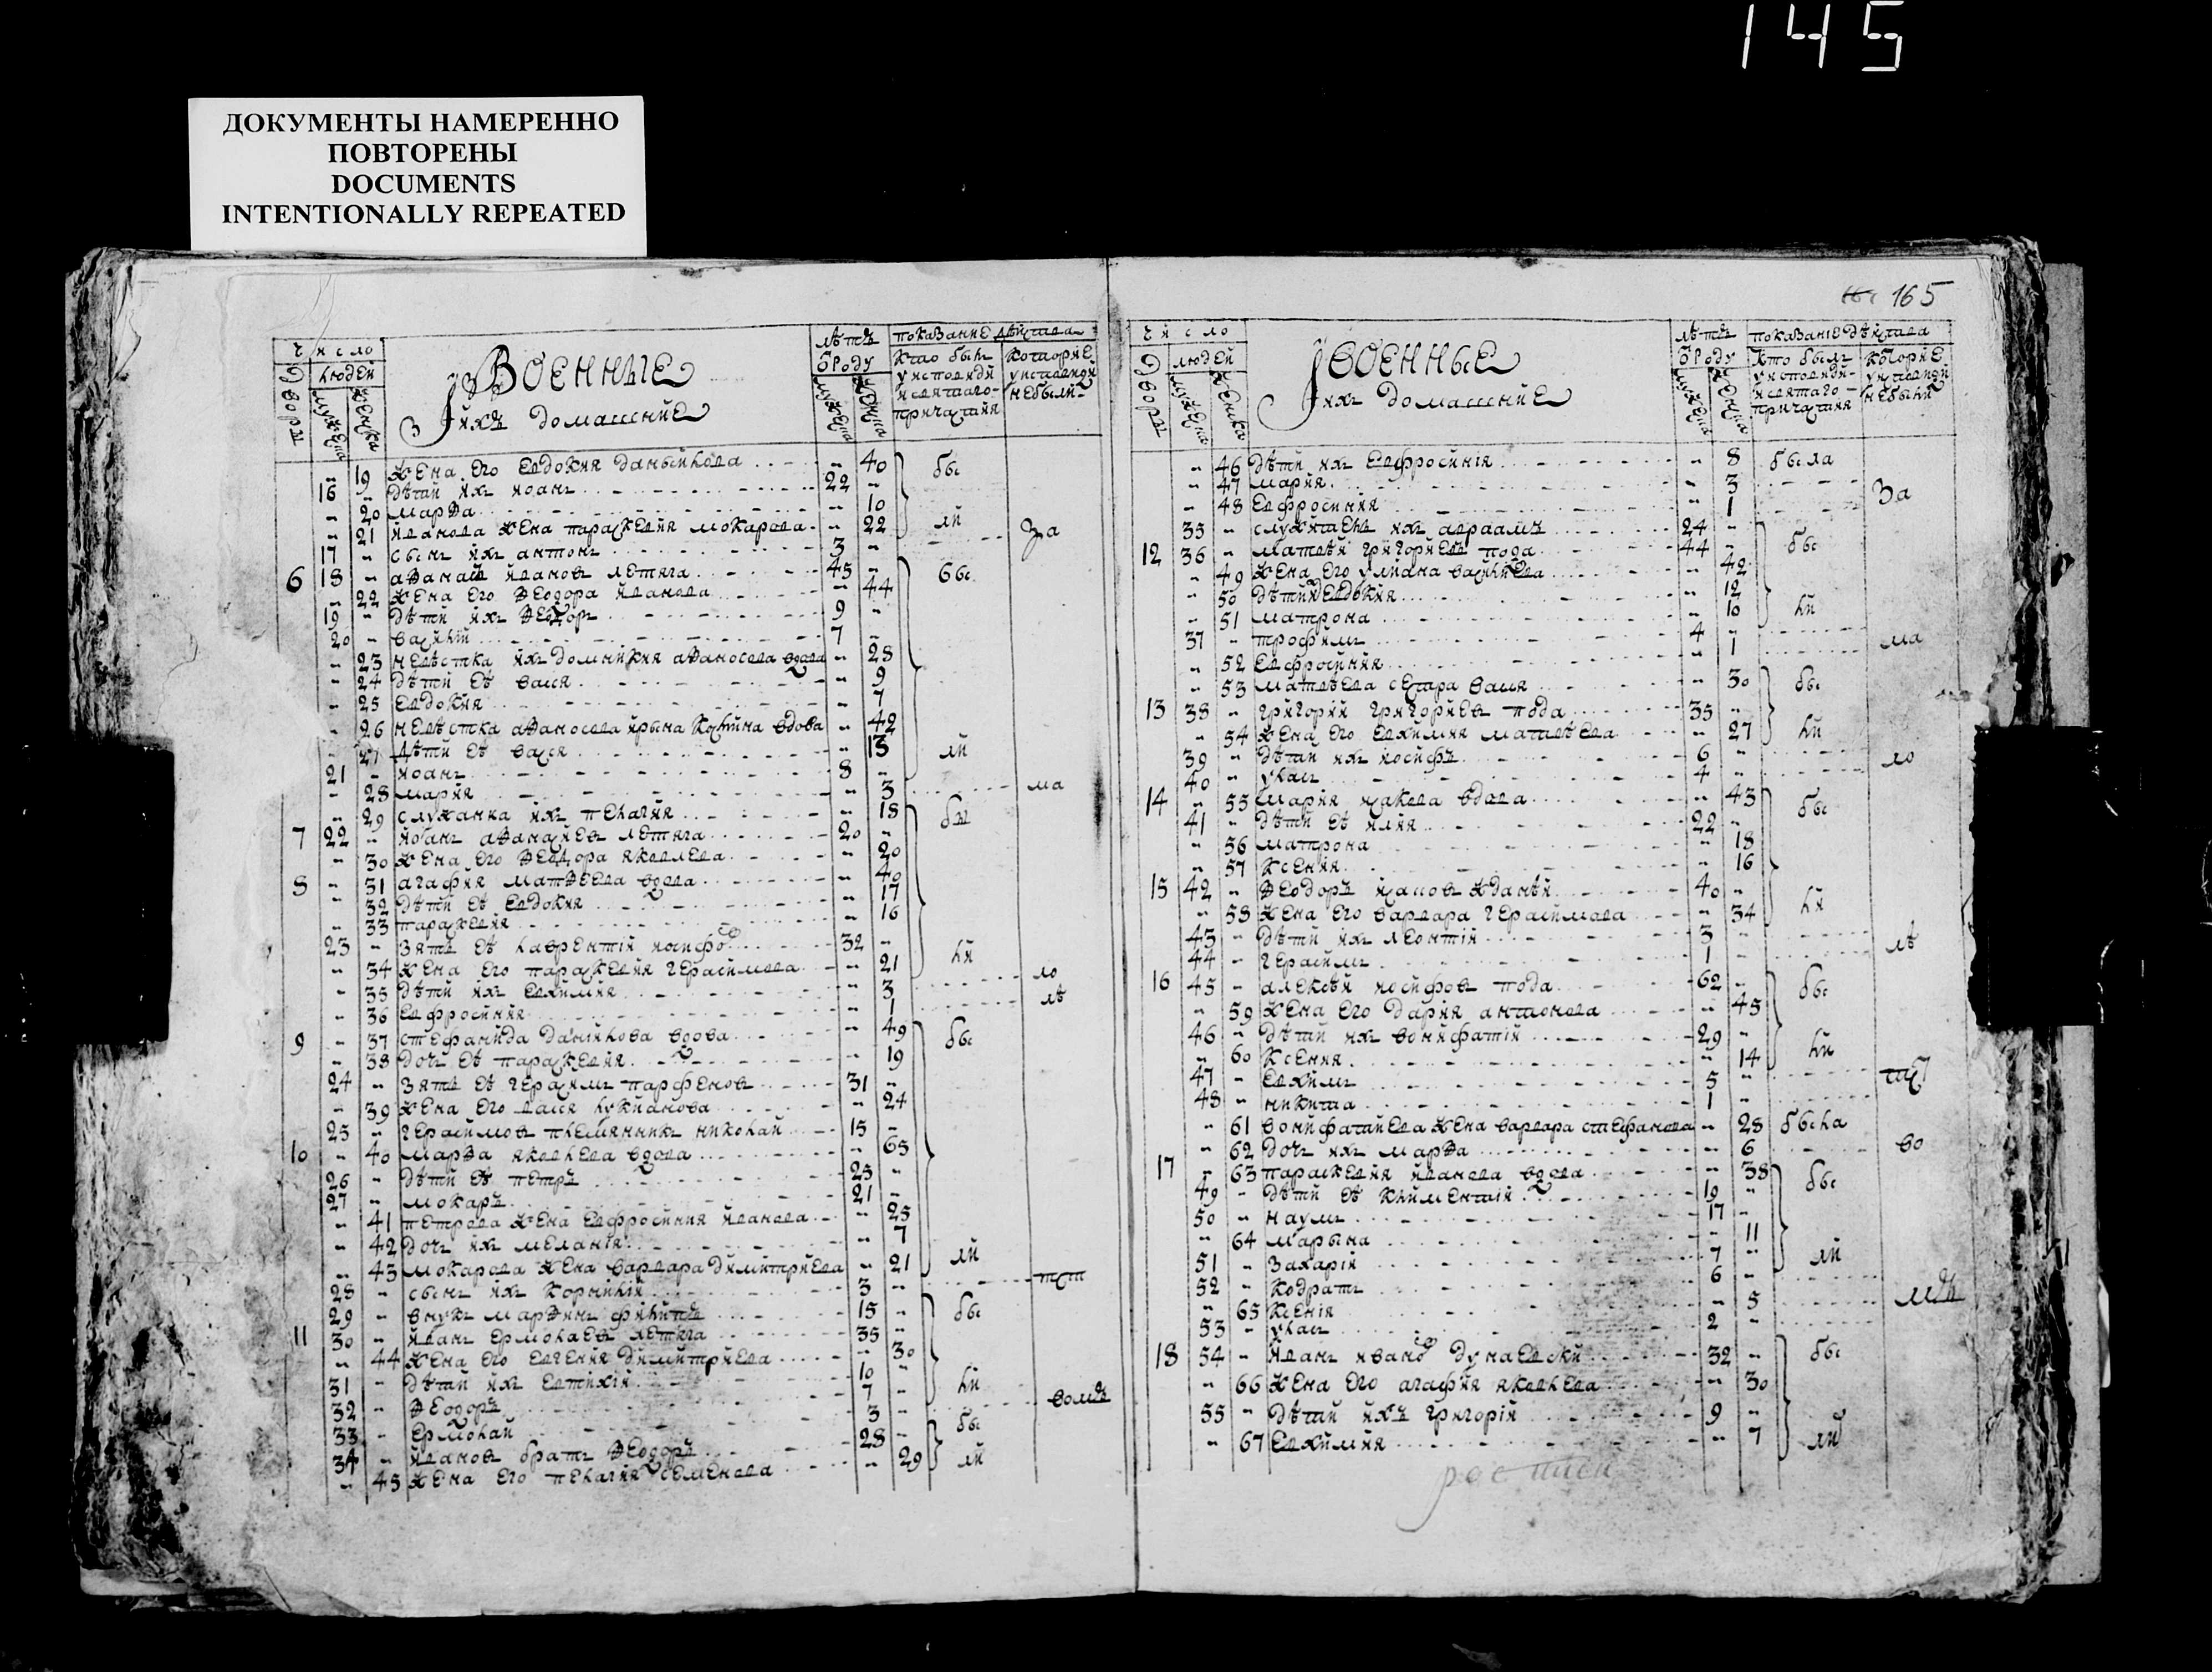 145
ДОКУМЕНТЫ НАМЕРЕННО
ПОВТОРЕНЫ
DOCUMENTS
INTENTIONALLY REPEATED
165
число
людей
дворы
мужеска
женска
Военные
и ихъ домашние
лѣтъ
ѿ роду
показание действа
кто былъ у исповеди и святаго причастия
которие у исповеди небыли
" 19 жена его евдокия данылкова " 40 бы
16 " дѣти ихъ иоанъ 22 "
" 20 марѳа " 10
" 21 иванова жена параскевия мокарова " 22 ли за
17 " сынъ ихъ антонъ 3 "
6 18 " аѳанасъ ивановъ летяга 45 " бы
" 22 жена его ѳеодора иванова " 44
19 " дѣти ихъ ѳеодоръ 9 "
20 " василий 7 "
" 23 невѣстка ихъ домникия аѳаносова вдова " 28
" 24 дѣти еѣ васся " 9
" 25 евдокия " 7
" 26 невѣстка аѳаносова ирына вдова " 42
" 27 дѣти еѣ васся " 13 ли
21 " иоанъ 8 "
" 28 мария " 3 ма
" 29 служанка ихъ пелагия " 18 бы
7 22 " иоанъ аѳанасиевъ летяга 20 "
" 30 жена его ѳеодора яковлева " 20
8 " 31 агафия матвеева вдова " 40
" 32 дѣти еѣ евдокия " 17
" 33 параскевия " 16
23 " зять еѣ лаврентий иосифо 32 "
" 34 жена его параскевия герасимова " 21 ли
" 35 дѣти ихъ евхимия " 3 ло
" 36 евфросиния " 1 лѣ
9 " 37 стефанида данилкова вдова " 49 бы
" 38 дочъ еѣ параскевия " 19
24 " зять еѣ герасимъ парфеновъ 31 "
" 39 жена его васся лукианова " 24
25 " герасимовъ племянникъ николай 15 "
10 " 40 марѳа яковлева вдова " 65
26 " дѣти еѣ петръ 25 "
27 " мокаръ 21 "
" 41 петрова жена евфросиния иванова " 25
" 42 дочъ ихъ меланія " 7
" 43 мокарова жена варвара димитриева " 21 ли
28 " сынъ ихъ корнилий 3 "
29 " внукъ марѳинъ филипъ 15 " бы
11 30 " иванъ ермолаевъ летяга 35 "
" 44 жена его евгения димитриева " 30
31 " дѣти ихъ евтихій 10 " ли
32 " ѳеодоръ 7 "
33 " ермолай 3 "
34 " ивановъ братъ ѳеодоръ 28 " бы
" 45 жена его пелагия семенова " 29 ли
число
людей
дворы
мужеска
женска
Военные
и ихъ домашние
лѣтъ
ѿ роду
показаніе дѣйства
кто былъ у исповеди и святаго причастия
которие у исповеди небыли
" 46 дѣти ихъ евфросинія " 8 была
" 47 мария " 3 за
" 48 евфросиния " 1
35 " служитель ихъ авраамъ 24 "
12 36 " матвѣй григориевъ пода 44 " бы
" 49 жена его улиана василиева " 42
" 50 дѣти евдокия " 12
" 51 матрона " 10 ли
37 " трофимъ 4 "
" 52 евфросиния " 1 ма
" 53 матвѣева сестра васся " 30 бы
13 38 " григорий григориевъ пода 35 "
" 54 жена его евхимия матвѣева " 27 ли
39 " дѣти ихъ иосифъ 6 "
40 " укасъ 4 " ло
14 " 55 мария исакова вдова " 43 бы
41 " дѣти еѣ илия 22 "
" 56 матрона " 18
" 57 ксенія " 16
15 42 " ѳеодоръ 40 "
" 58 жена его варвара герасимова " 34 ли
43 " дѣти ихъ леонтій 3 "
44 " герасимъ 1 " лѣ
16 45 " алексѣй иосифовъ пода 62 " бы
" 59 жена его дария антонова " 45
46 " дѣти ихъ вонифатий 29 "
" 60 ксения " 14 ли
47 " евхимъ 5 "
48 " никита 1 "
" 61 вонифатиева жена варвара стефанова " 28 была
" 62 дочъ ихъ марѳа " 6 во
17 " 63 параскевия иванова вдова " 38 бы
49 " дѣти еѣ климентий 19 "
50 " наумъ 17 "
" 64 марына " 11
51 " захарій 7 " ли
52 " кодратъ 6 "
" 65 ксенія " 5
53 " укасъ 2 "
18 54 " иванъ ивано дунаевски 32 " бы
" 66 жена его агафия яковлева " 30
55 " дѣти ихъ григорій 9 "
" 67 евхимия " 7 ли